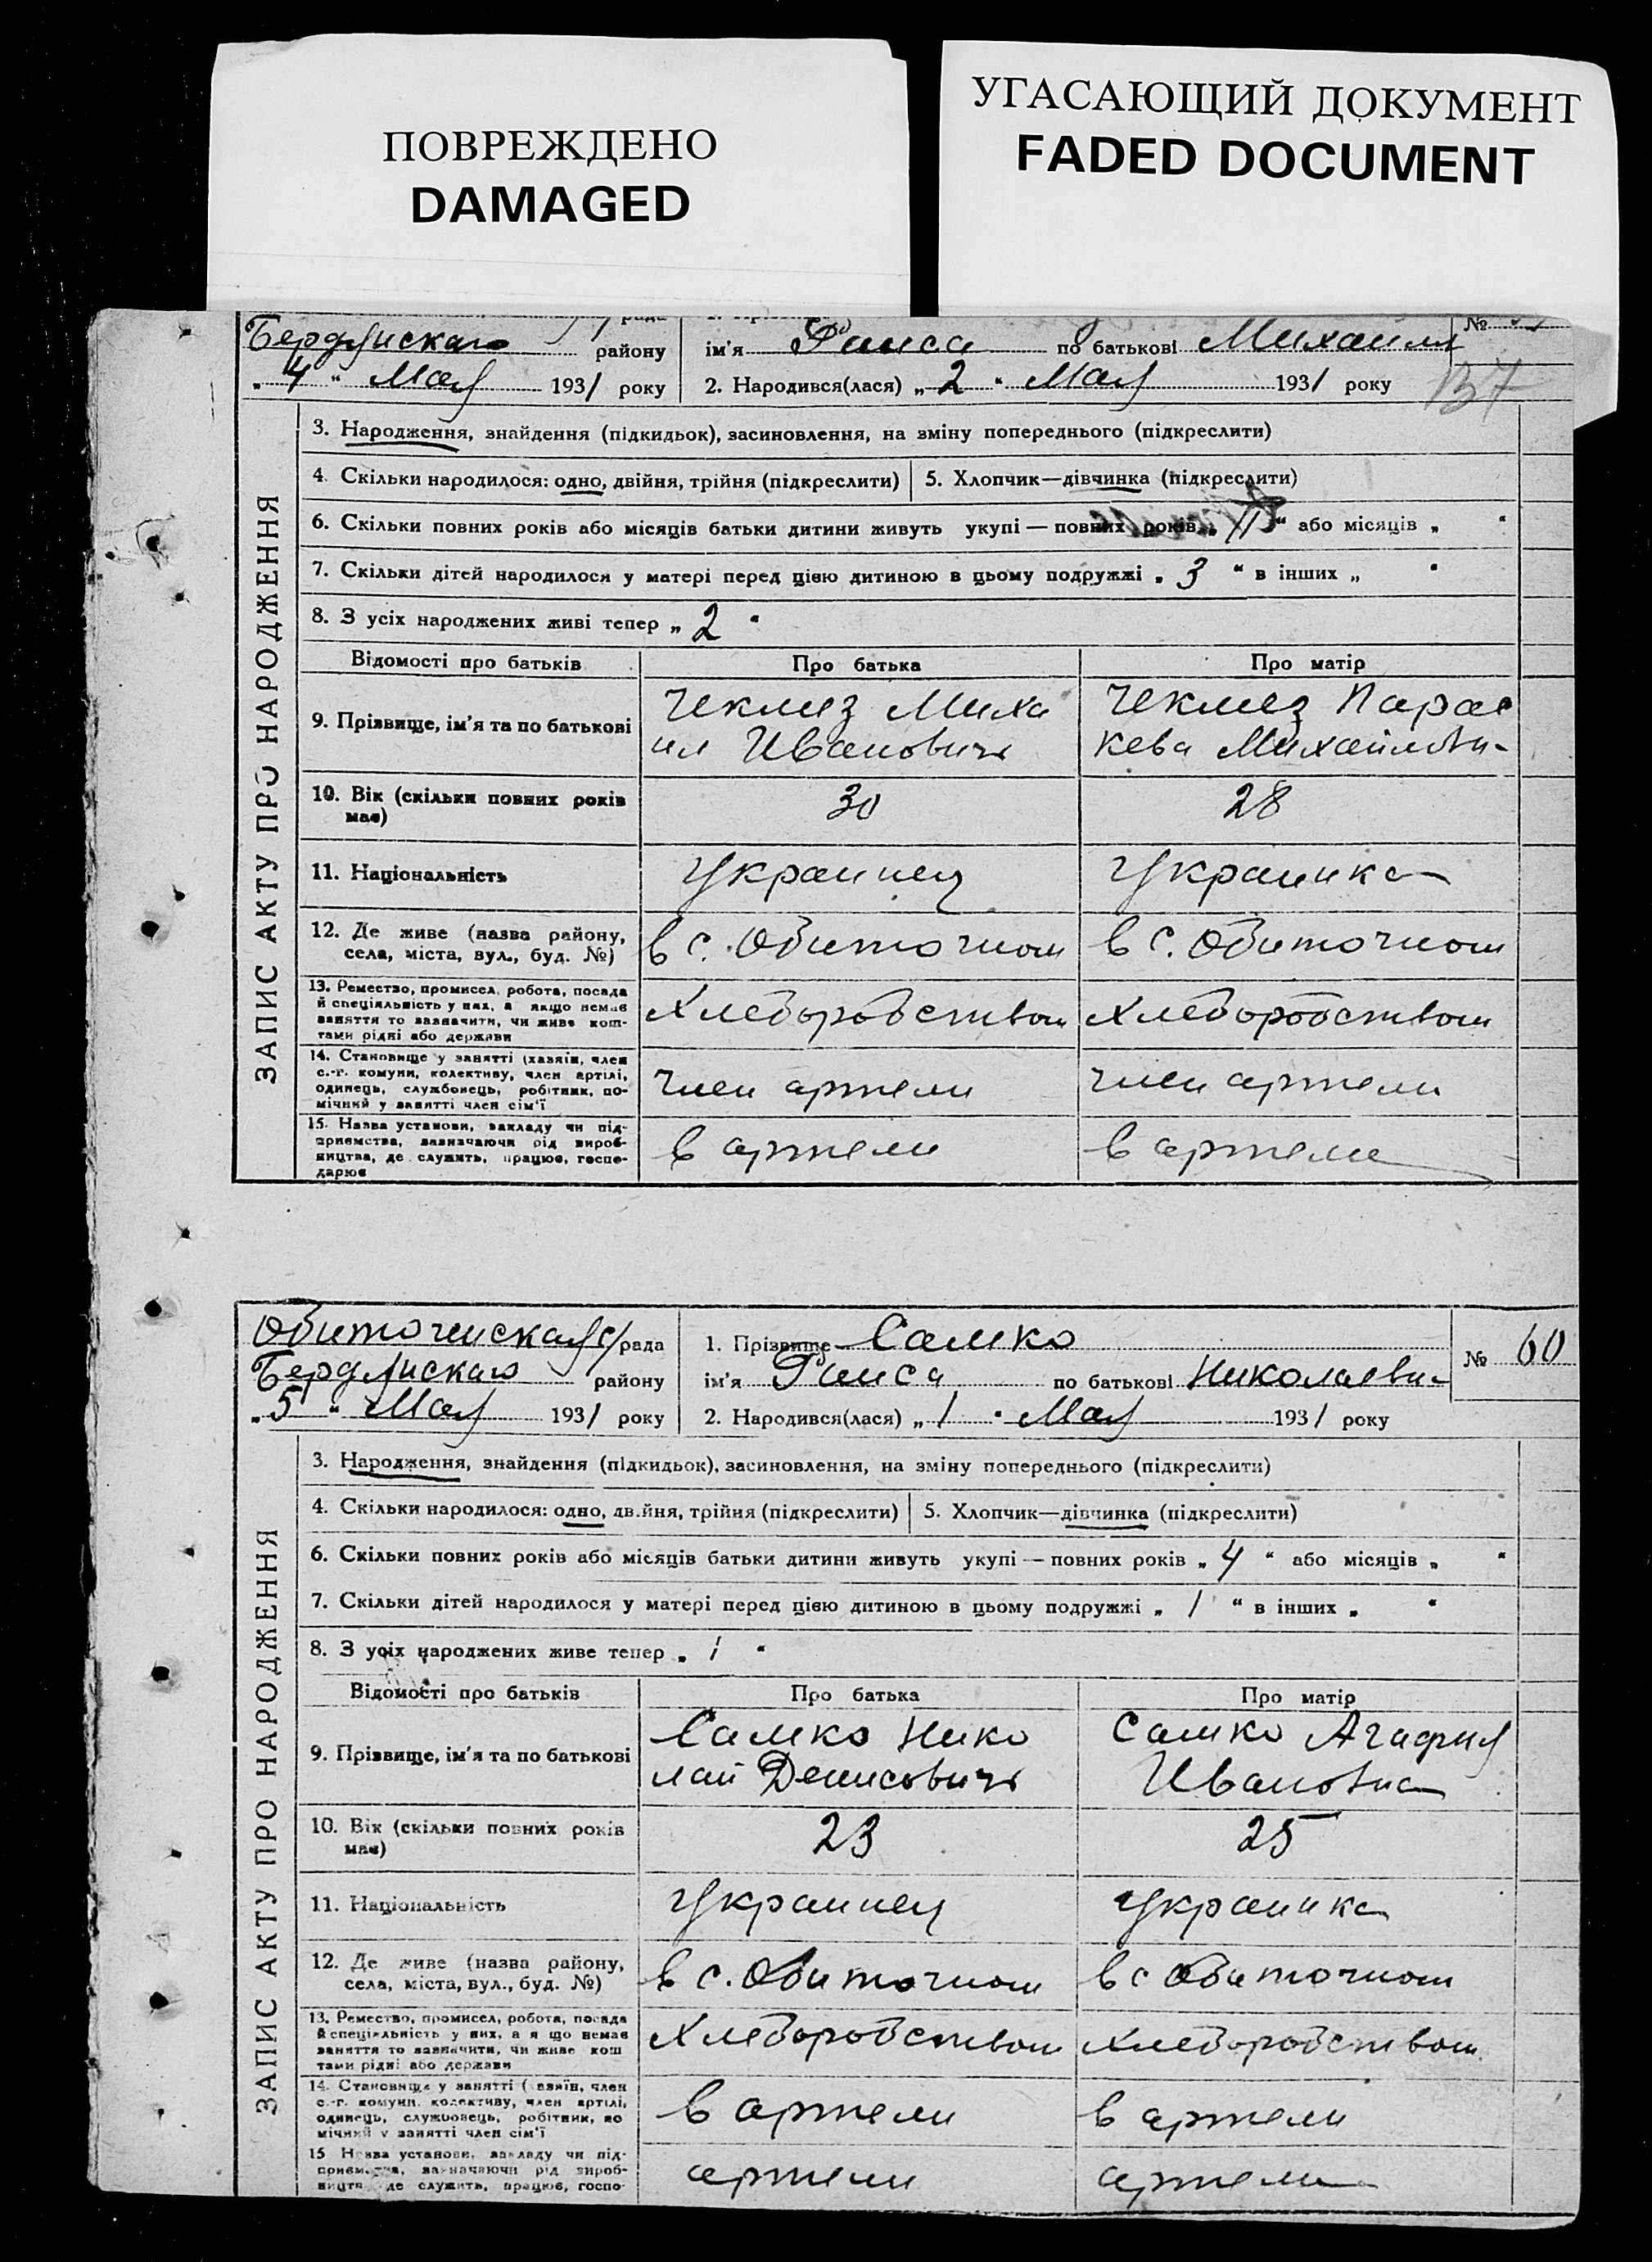 ПОВРЕЖДЕНО
DAMAGED
УГАСАЮЩИЙ ДОКУМЕНТ
FADED DOCUMENT
Бердянскаго району
ім'я Раиса по батькові Михайл
№
„ 4 “ Мая 1931 року
2. Народився(лася) „ 2 “ Мая 1931 року
137
ЗАПИС АКТУ ПРО НАРОДЖЕННЯ
3. Народження, знайдення (підкидьок), засиновлення, на зміну попереднього (підкреслити)
4. Скільки народилося: одно, двійня, трійня (підкреслити)
5. Хлопчик—дівчинка (підкреслити)
6. Скільки повних років або місяців батьки дитини живуть укупі — повних років „ 11 “ або місяців „ “
7. Скільки дітей народилося у матері перед цією дитиною в цьому подружжі „ 3 “ в інших „ “
8. З усіх народжених живі тепер „ 2 “
Відомості про батьків
Про батька
Про матір
9. Прізвище, ім'я та по батькові
Чекмез Миха
ил Ивановичъ
Чекмез Парас
кева Михайловн-
10. Вік (скільки повних років
має)
30
28
11. Національність
Украинец
Украинка
12. Де живе (назва району,
села, міста, вул., буд. №)
в с. Обиточном
в с. Обиточном
13. Ремество, промисел, робота, посада
й спеціяльність у них, а якщо немає
заняття то зазначити, чи живе кош-
тами рідні або держави
Хлеборобством
Хлеборобством
14. Становище у занятті (хазяїн, член
с.-г. комуни, колективу, член артілі,
одинець, службовець, робітник, по-
мічний у занятті член сім'ї
член артели
член артели
15. Назва установи, закладу чи під-
приємства, зазначаючи рід вироб-
ництва, де служить, працює, госпо-
дарює
в артели
в артели
Обиточенская с/рада
1. Прізвище Самко
№ 60
Бердянскаго району
ім'я Раиса по батькові Николаевн-
„ 5 “ Мая 1931 року
2. Народився(лася) „ 1 “ Мая 1931 року
ЗАПИС АКТУ ПРО НАРОДЖЕННЯ
3. Народження, знайдення (підкидьок), засиновлення, на зміну попереднього (підкреслити)
4. Скільки народилося: одно, двійня, трійня (підкреслити)
5. Хлопчик—дівчинка (підкреслити)
6. Скільки повних років або місяців батьки дитини живуть укупі — повних років „ 4 “ або місяців „ “
7. Скільки дітей народилося у матері перед цією дитиною в цьому подружжі „ 1 “ в інших „ “
8. З усіх народжених живе тепер „ 1 “
Відомості про батьків
Про батька
Про матір
9. Прізвище, ім'я та по батькові
Самко Нико
лай Денисовичъ
Самко Агафия
Ивановна
10. Вік (скільки повних років
має)
23
25
11. Національність
Украинец
Украинка
12. Де живе (назва району,
села, міста, вул., буд. №)
в с. Обиточном
в с Обиточном
13. Ремество, промисел, робота, посада
й спеціяльність у них, а якщо немає
заняття то зазначити, чи живе кош
тами рідні або держави
Хлеборобством
Хлеборобством
14. Становище у занятті (хазяїн, член
с.-г. комуни, колективу, член артілі,
одинець, службовець, робітник, по
мічний у занятті член сім'ї
в артели
в артели
15 Назва установи, закладу чи під-
приємства, зазначаючи рід вироб-
ництва де служить, працює, госпо-
артели
артели